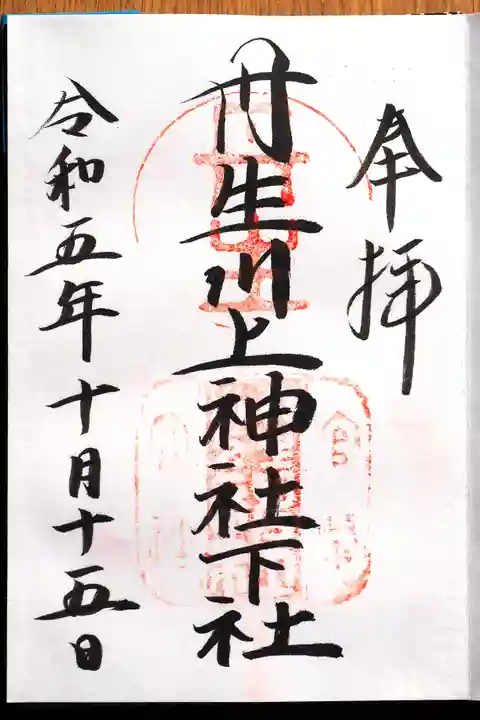 奉拝
丹生川上神社下社
令和五年十月十五日